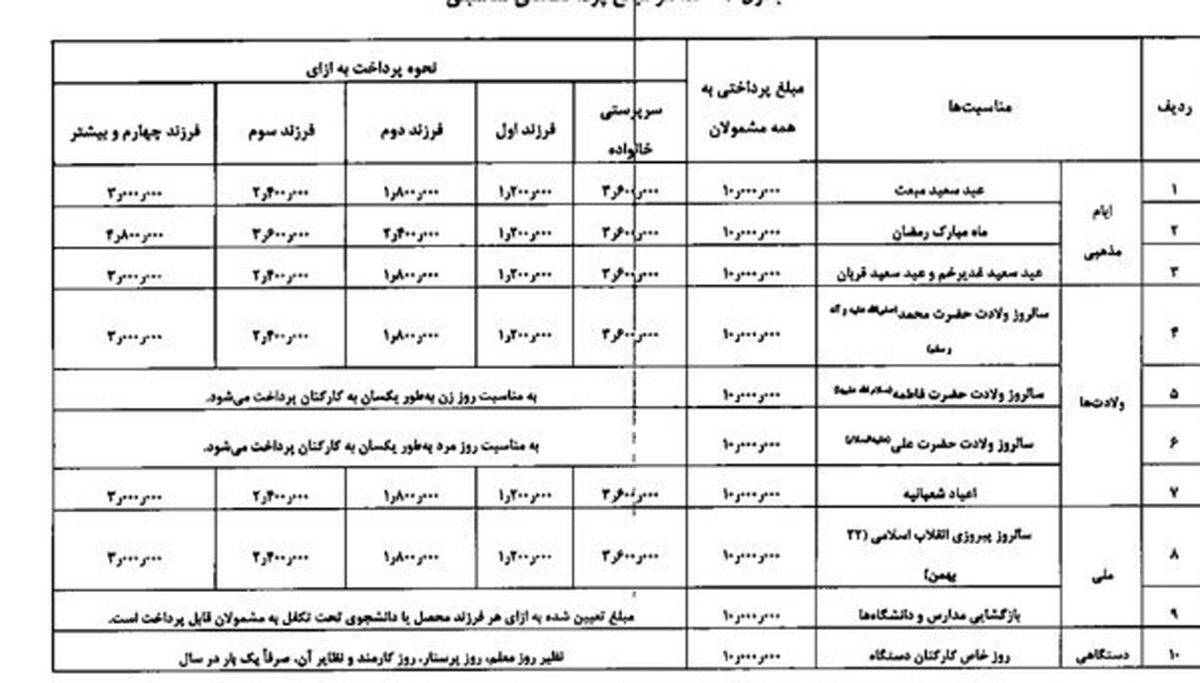 ردیف مناسبت‌ها مبلغ پرداختی به همه مشمولان نحوه پرداخت به ازای
سرپرستی خانواده فرزند اول فرزند دوم فرزند سوم فرزند چهارم و بیشتر
ایام مذهبی
۱ عید سعید مبعث ۱۰٫۰۰۰٫۰۰۰ ۳٫۶۰۰٫۰۰۰ ۱٫۲۰۰٫۰۰۰ ۱٫۸۰۰٫۰۰۰ ۲٫۴۰۰٫۰۰۰ ۳٫۰۰۰٫۰۰۰
۲ ماه مبارک رمضان ۱۰٫۰۰۰٫۰۰۰ ۳٫۶۰۰٫۰۰۰ ۱٫۲۰۰٫۰۰۰ ۲٫۴۰۰٫۰۰۰ ۳٫۶۰۰٫۰۰۰ ۴٫۸۰۰٫۰۰۰
۳ عید سعید غدیرخم و عید سعید قربان ۱۰٫۰۰۰٫۰۰۰ ۳٫۶۰۰٫۰۰۰ ۱٫۲۰۰٫۰۰۰ ۱٫۸۰۰٫۰۰۰ ۲٫۴۰۰٫۰۰۰ ۳٫۰۰۰٫۰۰۰
ولادت‌ها
۴ سالروز ولادت حضرت محمد (صلی‌الله علیه و آله و سلم) ۱۰٫۰۰۰٫۰۰۰ ۳٫۶۰۰٫۰۰۰ ۱٫۲۰۰٫۰۰۰ ۱٫۸۰۰٫۰۰۰ ۲٫۴۰۰٫۰۰۰ ۳٫۰۰۰٫۰۰۰
۵ سالروز ولادت حضرت فاطمه (سلام‌الله علیها) ۱۰٫۰۰۰٫۰۰۰ به مناسبت روز زن به‌طور یکسان به کارکنان پرداخت می‌شود.
۶ سالروز ولادت حضرت علی (علیه‌السلام) ۱۰٫۰۰۰٫۰۰۰ به مناسبت روز مرد به‌طور یکسان به کارکنان پرداخت می‌شود.
۷ اعیاد شعبانیه ۱۰٫۰۰۰٫۰۰۰ ۳٫۶۰۰٫۰۰۰ ۱٫۲۰۰٫۰۰۰ ۱٫۸۰۰٫۰۰۰ ۲٫۴۰۰٫۰۰۰ ۳٫۰۰۰٫۰۰۰
ملی
۸ سالروز پیروزی انقلاب اسلامی (۲۲ بهمن) ۱۰٫۰۰۰٫۰۰۰ ۳٫۶۰۰٫۰۰۰ ۱٫۲۰۰٫۰۰۰ ۱٫۸۰۰٫۰۰۰ ۲٫۴۰۰٫۰۰۰ ۳٫۰۰۰٫۰۰۰
۹ بازگشایی مدارس و دانشگاه‌ها ۱۰٫۰۰۰٫۰۰۰ مبلغ تعیین شده به ازای هر فرزند محصل یا دانشجوی تحت تکفل به مشمولان قابل پرداخت است.
۱۰ دستگاهی روز خاص کارکنان دستگاه ۱۰٫۰۰۰٫۰۰۰ نظیر روز معلم، روز پرستار، روز کارمند و نظایر آن، صرفاً یک بار در سال